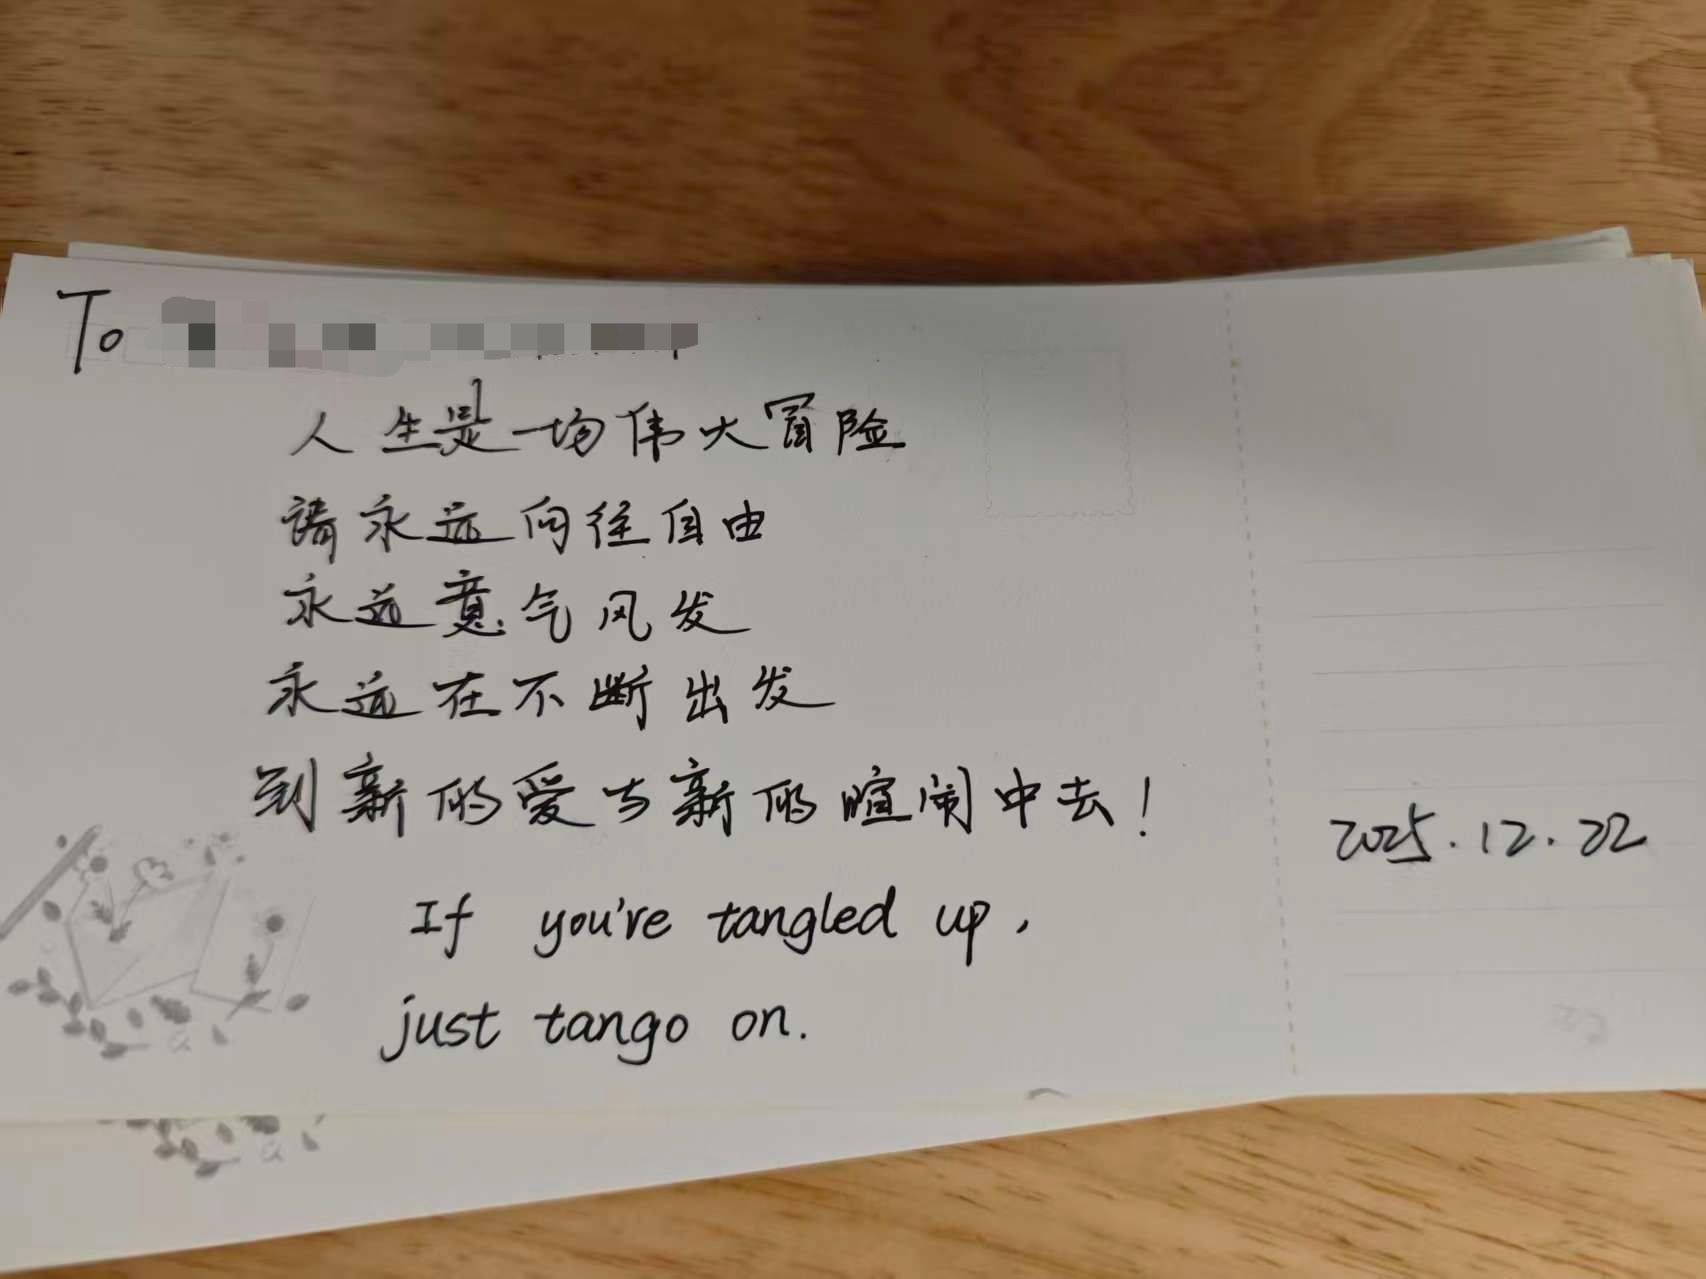 To
人生是一场伟大冒险
请永远向往自由
永远意气风发
永远在不断出发
到新的爱与新的喧闹中去！
If you're tangled up,
just tango on.
2025.12.22